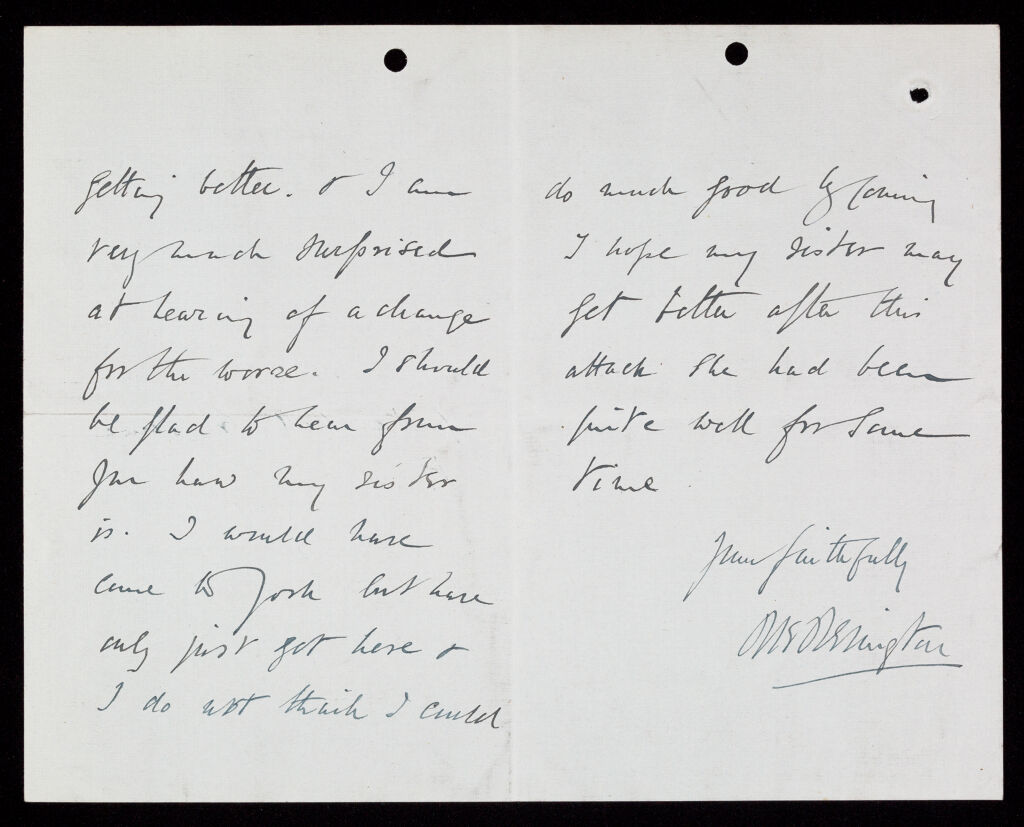 getting better. & I am
very much surprised
at hearing of a change
for the worse. I should
be glad to hear from
you how my sister
is. I would have
come to York but have
only just got here &
I do not think I could
do much good by coming
I hope my sister may
get better after this
attack she had been
quite well for some
time
Yours faithfully